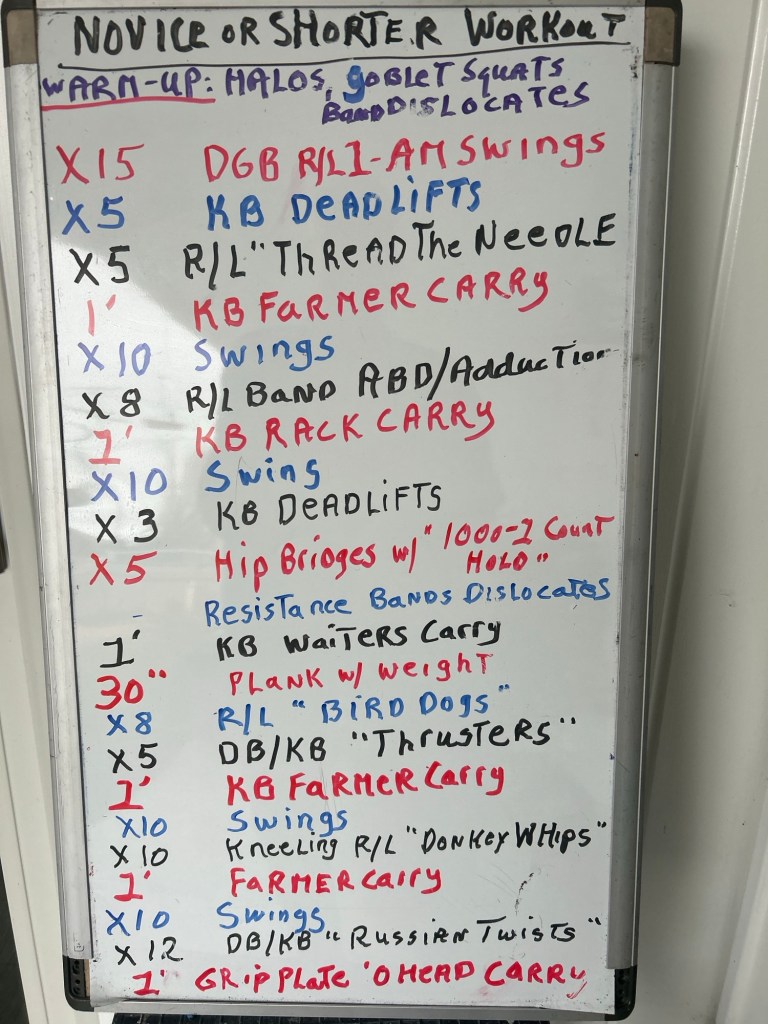 NOVICE OR SHORTER WORKOUT
WARM-UP: HALOS, gOBLET SQUATS
BAND DISLOCATES
X15 DGB R/L 1-AM Swings
X5 KB DEADLIFTS
X5 R/L "THREAD THE NEEDLE
1' KB FARMER CARRY
X10 Swings
X8 R/L BAND ABD/Adduction
1' KB RACK CARRY
X10 Swing
X3 KB DEADLIFTS
X5 Hip Bridges w/ "1000-1 Count
HOLD"
- Resistance BANDS DISLOCATES
1' KB WAITERS Carry
30" PLANK w/ weight
X8 R/L "BIRD DOgS"
X5 DB/KB "THRUSTERS"
1' KB FARMER Carry
X10 Swings
X10 Kneeling R/L "DONKEY WHIPS"
1' FARMER Carry
X10 Swings
X12 DB/KB "RUSSIAN TWISTS"
1' GRIP PLATE 'O HEAD CARRY